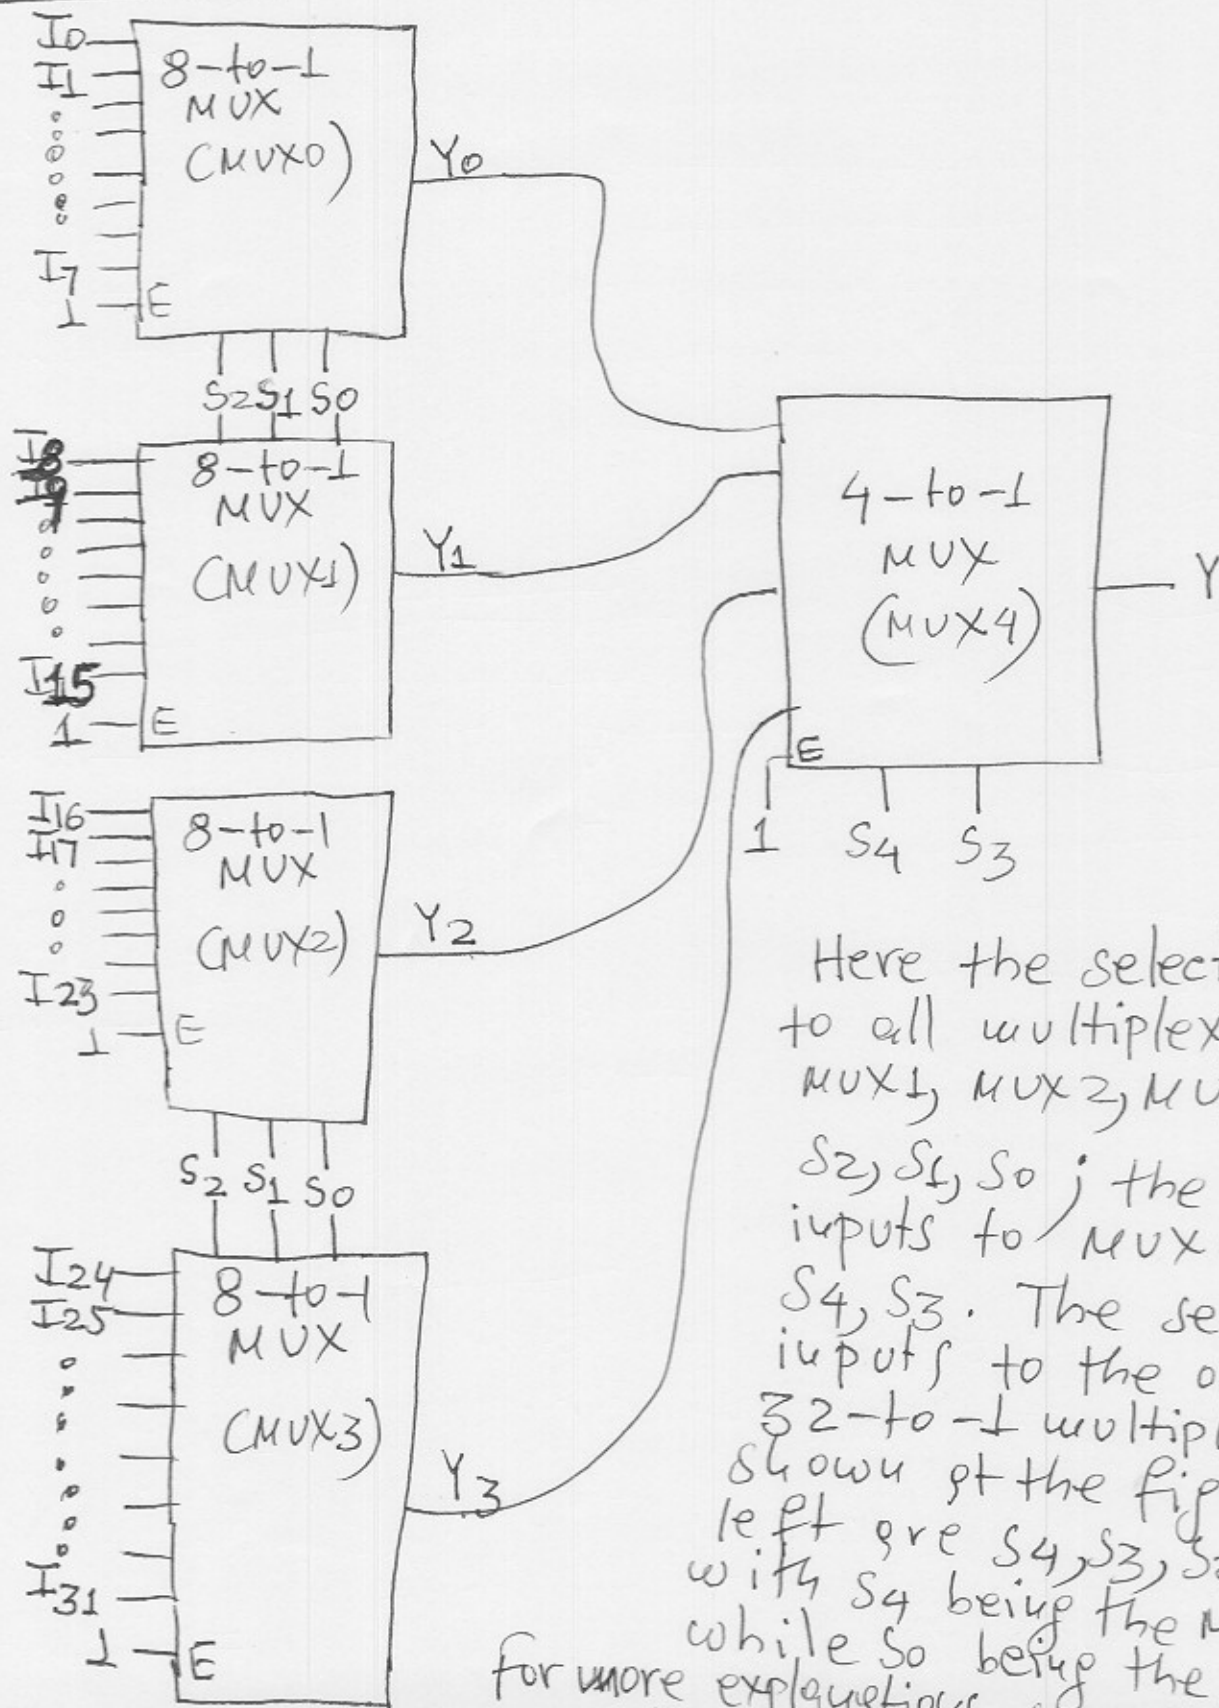 I0
I1
I7
1
E
8-to-1
MUX
(MUX0)
Y0
S2 S1 S0
I8
I9
I15
1
E
8-to-1
MUX
(MUX1)
Y1
I16
I17
I23
1
E
8-to-1
MUX
(MUX2)
Y2
S2 S1 S0
I24
I25
I31
1
E
8-to-1
MUX
(MUX3)
Y3
4-to-1
MUX
(MUX4)
E
1
S4 S3
Y
Here the select
to all multiplex
MUX1, MUX2, MU
S2, S1, S0 ; the
inputs to MUX
S4, S3. The se
inputs to the o
32-to-1 multipl
shown at the fig
left are S4, S3, S2
with S4 being the M
while S0 being the
for more explanations